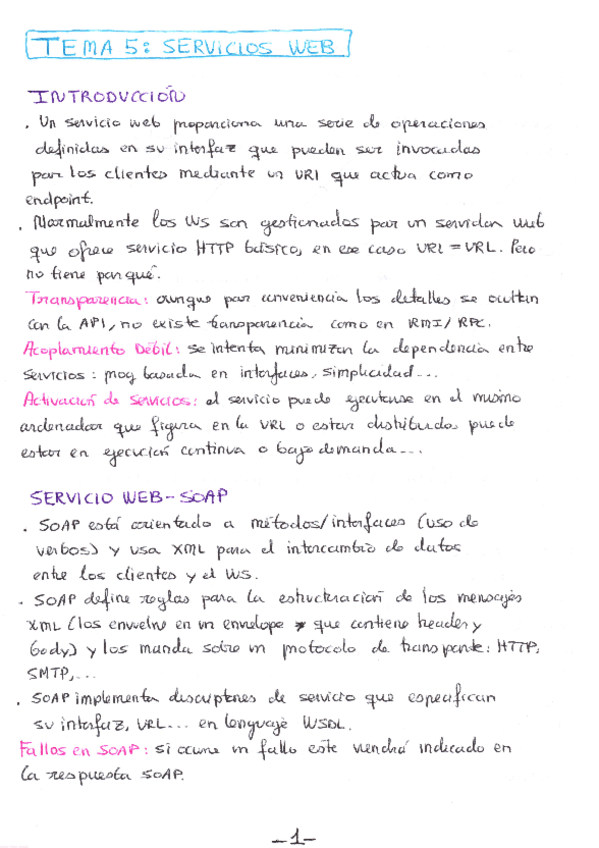 TEMA 5: SERVICIOS WEB
INTRODUCCIÓN
. Un servicio web proporciona una serie de operaciones
definidas en su interfaz que pueden ser invocadas
por los clientes mediante un URI que actua como
endpoint.
. Normalmente los WS son gestionados por un servidor web
que ofrece servicio HTTP básico, en ese caso URI = URL. Pero
no tiene por qué.
Transparencia: aunque por conveniencia los detalles se ocultan
con la API, no existe transparencia como en RMI/RPC.
Acoplamiento Débil: se intenta minimizar la dependencia entre
servicios: prog basada en interfaces, simplicidad...
Activación de servicios: el servicio puede ejecutarse en el mismo
ordenador que figura en la URL o estar distribuido, puede
estar en ejecución continua o bajo demanda...
SERVICIO WEB-SOAP
. SOAP está orientado a métodos/interfaces (uso de
verbos) y usa XML para el intercambio de datos
entre los clientes y el WS.
. SOAP define reglas para la estructuración de los mensajes
XML (los envuelve en un envelope que contiene header y
body) y los manda sobre un protocolo de transporte: HTTP,
SMTP,...
. SOAP implementa descriptores de servicio que especifican
su interfaz, URL... en lenguaje WSDL.
Fallos en SOAP: si ocurre un fallo este vendrá indicado en
la respuesta SOAP.
-1-